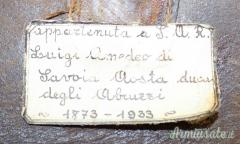 appartenuta a S. A. R.
Luigi Amedeo di
Savoia Aosta duca
degli Abruzzi
- 1873 - 1933 -
Armiusate.it